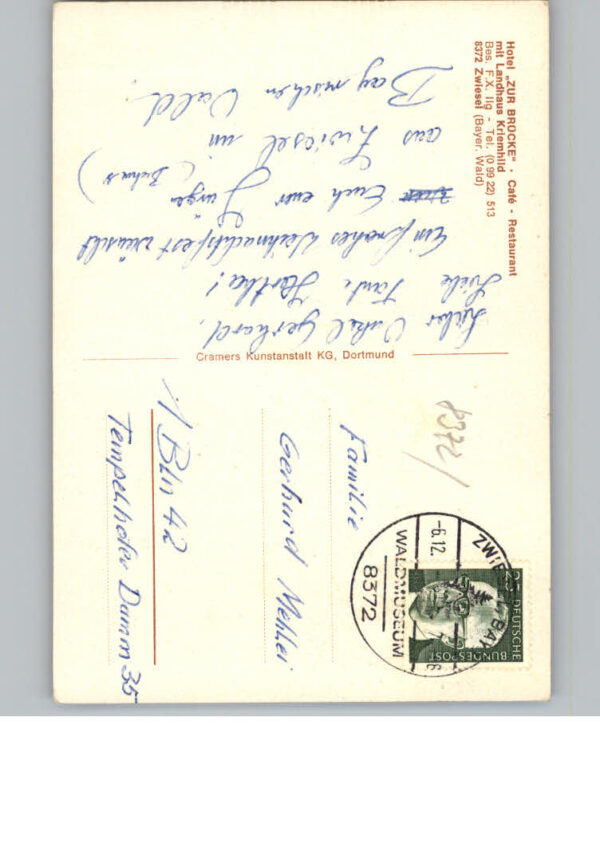 Hotel „ZUR BRÜCKE" · Café - Restaurant
mit Landhaus Kriemhild
Bes. F.X. Ilg - Tel. (0 99 22) 513
8372 Zwiesel (Bayer. Wald)
Lieber Onkel Gerhard,
Liebe Tante Hertha!
Ein frohes Weihnachtsfest wünscht
Euch euer Jürgen
aus Zwiesel im
Bayrischen Wald.
Cramers Kunstanstalt KG, Dortmund
8372/
ZWIESEL BAY
-6.12.
WALDMUSEUM
8372
25
DEUTSCHE
BUNDESPOST
Familie
Gerhard
1 Bln 42
Tempelhofer Damm 35